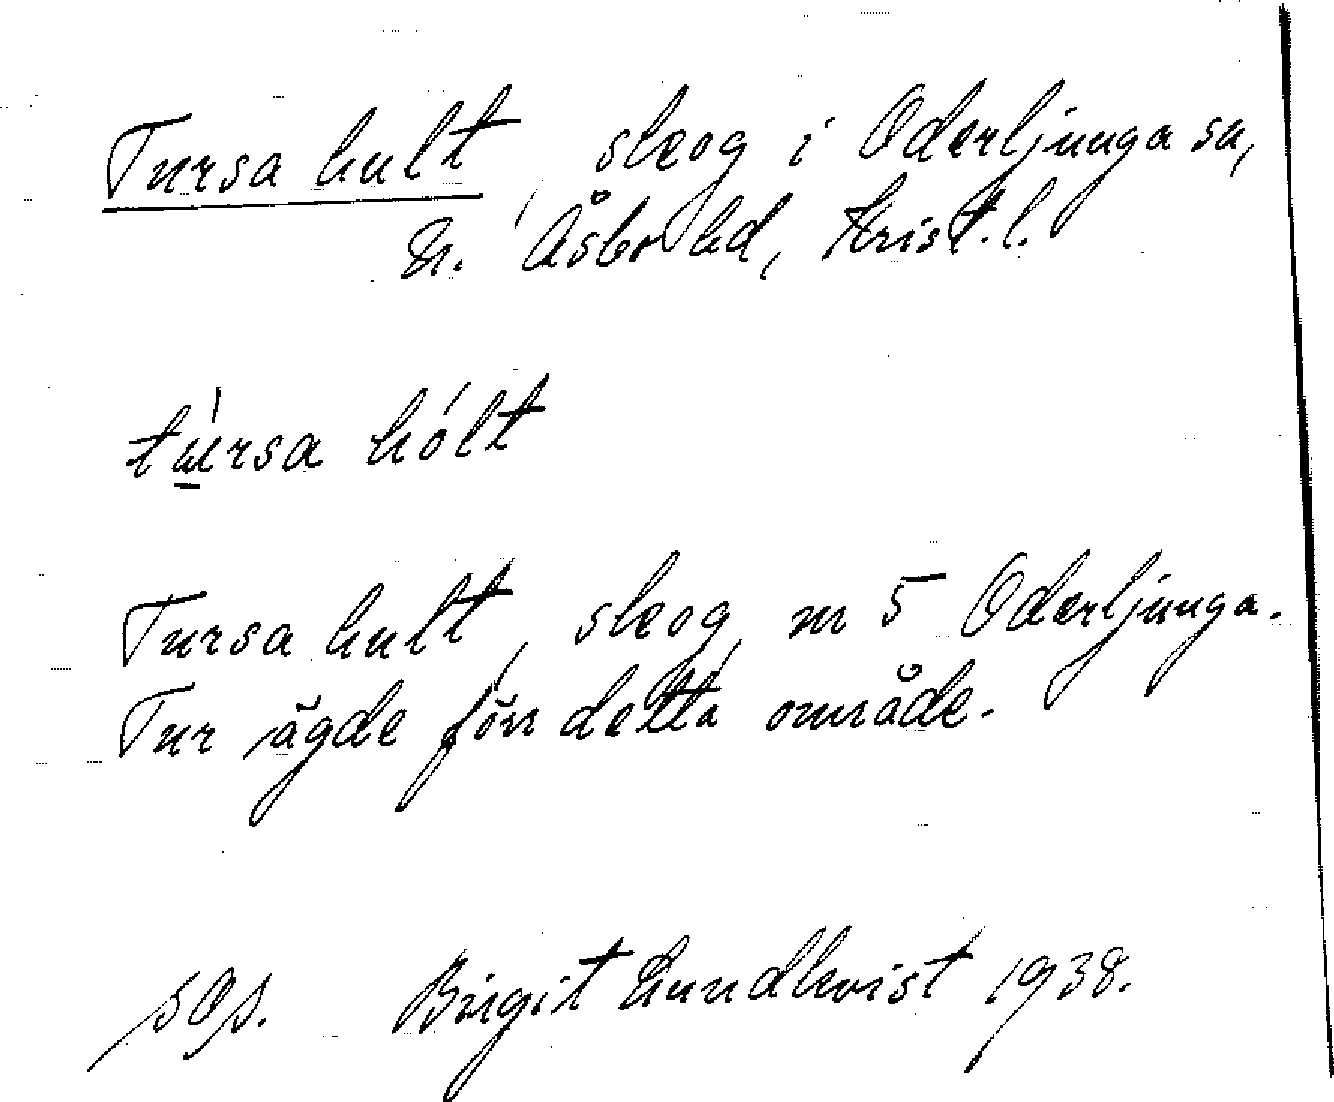 Tursa hult, skog i Oderljunga sn,
N. Åsbo hd, Krist. l.
tu̱rsa hólt
Tursa hult, skog, nr 5 Oderljunga.
Tur ägde förr detta område.
Birgit Lundkvist 1938.